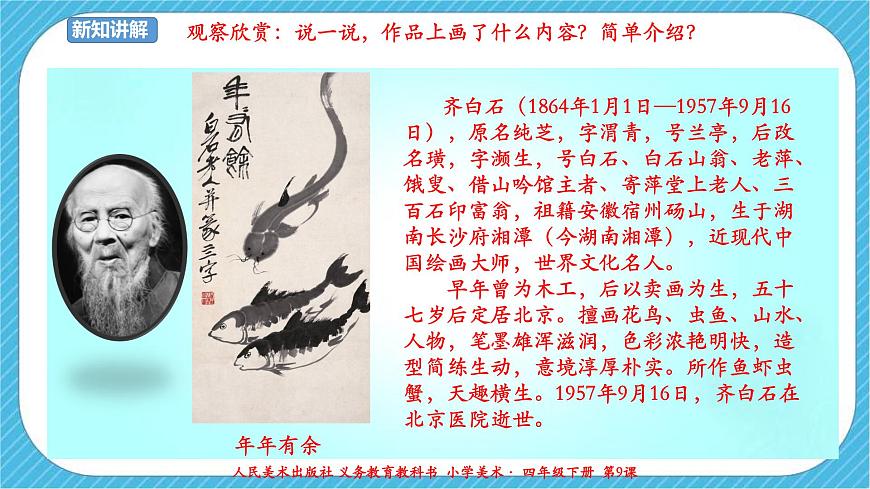 新知讲解
观察欣赏：说一说，作品上画了什么内容？简单介绍？
年有餘
白石老人并篆三字
齐白石（1864年1月1日—1957年9月16
日），原名纯芝，字渭青，号兰亭，后改
名璜，字濒生，号白石、白石山翁、老萍、
饿叟、借山吟馆主者、寄萍堂上老人、三
百石印富翁，祖籍安徽宿州砀山，生于湖
南长沙府湘潭（今湖南湘潭），近现代中
国绘画大师，世界文化名人。
早年曾为木工，后以卖画为生，五十
七岁后定居北京。擅画花鸟、虫鱼、山水、
人物，笔墨雄浑滋润，色彩浓艳明快，造
型简练生动，意境淳厚朴实。所作鱼虾虫
蟹，天趣横生。1957年9月16日，齐白石在
北京医院逝世。
年年有余
人民美术出版社 义务教育教科书 小学美术· 四年级下册 第9课